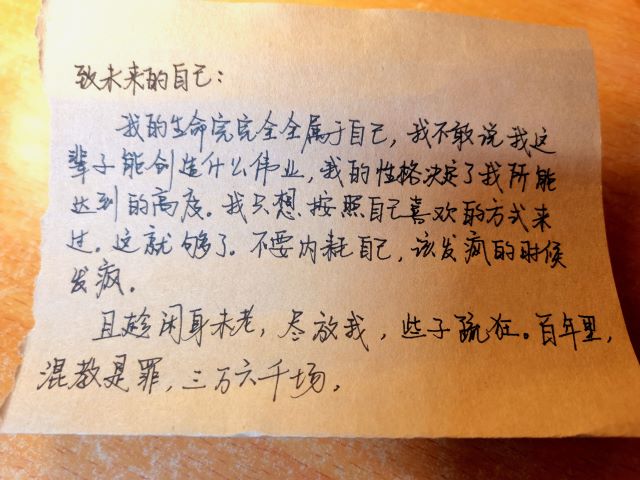 致未来的自己：
我的生命完完全全属于自己，我不敢说我这
辈子能创造什么伟业，我的性格决定了我所能
达到的高度。我只想按照自己喜欢的方式来
过。这就够了。不要内耗自己，该发疯的时候
发疯。
且趁闲身未老，尽放我，些子疏狂。百年里，
混教是罪，三万六千场，